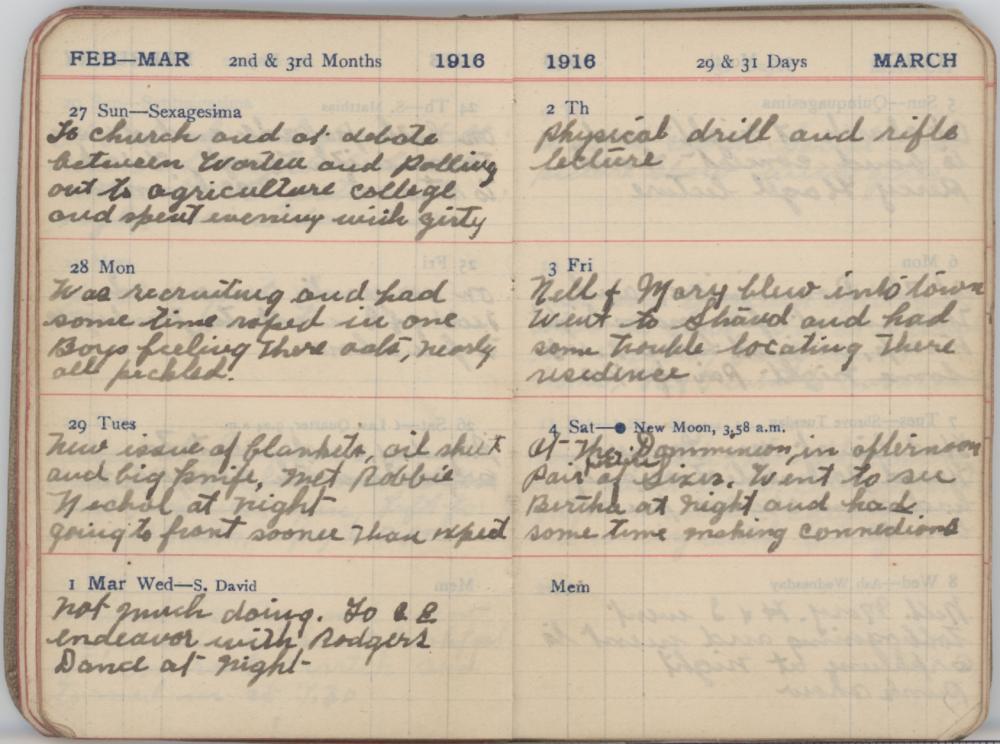 FEB—MAR 2nd & 3rd Months 1916
27 Sun—Sexagesima
To church and at debate
between Worten and Polling
out to agriculture college
and spent evening with girty
28 Mon
Was recruiting and had
some time roped in one
Boys feeling there oats, nearly
all pickled.
29 Tues
New issue of blankets, oil sheet
and big knife, Met Robbie
Nechol at night
going to front sooner than expect
1 Mar Wed—S. David
Not much doing. To C E
endeavor with Rodgers
Dance at night
1916 29 & 31 Days MARCH
2 Th
Physical drill and rifle
lecture
3 Fri
Nell & Mary blew into town
Went to and had
some trouble locating there
residence
4 Sat—● New Moon, 3,58 a.m.
At The Dommineon in afternoon
Pair of Sixes. Went to see
Bertha at night and had
some time making connections
Mem